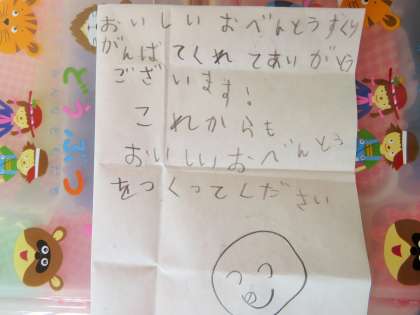 おいしい おべんとうずくり
がんばてくれ てありがとう
ございます!
これからも
おいしいおべんとう
をつくってください
どうぶつ